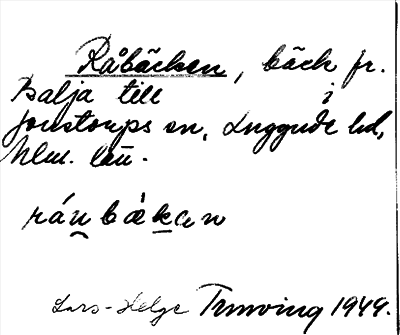 Råbäcken, bäck fr.
Balja till i
Jonstorps sn, Luggude hd,
Mlm. län.
ráu bäkan
Lars-Helge Trunving 1944.